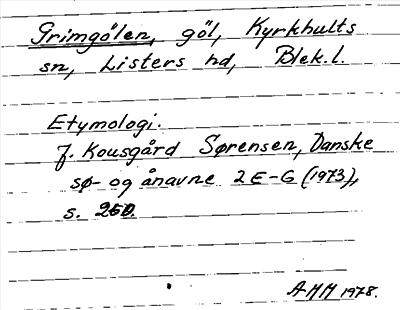 Grimgölen, göl, Kyrkhults
sn, Listers hd, Blek.l.
Etymologi.
J. Kousgård Sørensen, Danske
sø- og ånavne 2 E-G (1973),
s. 260.
AMM 1978.